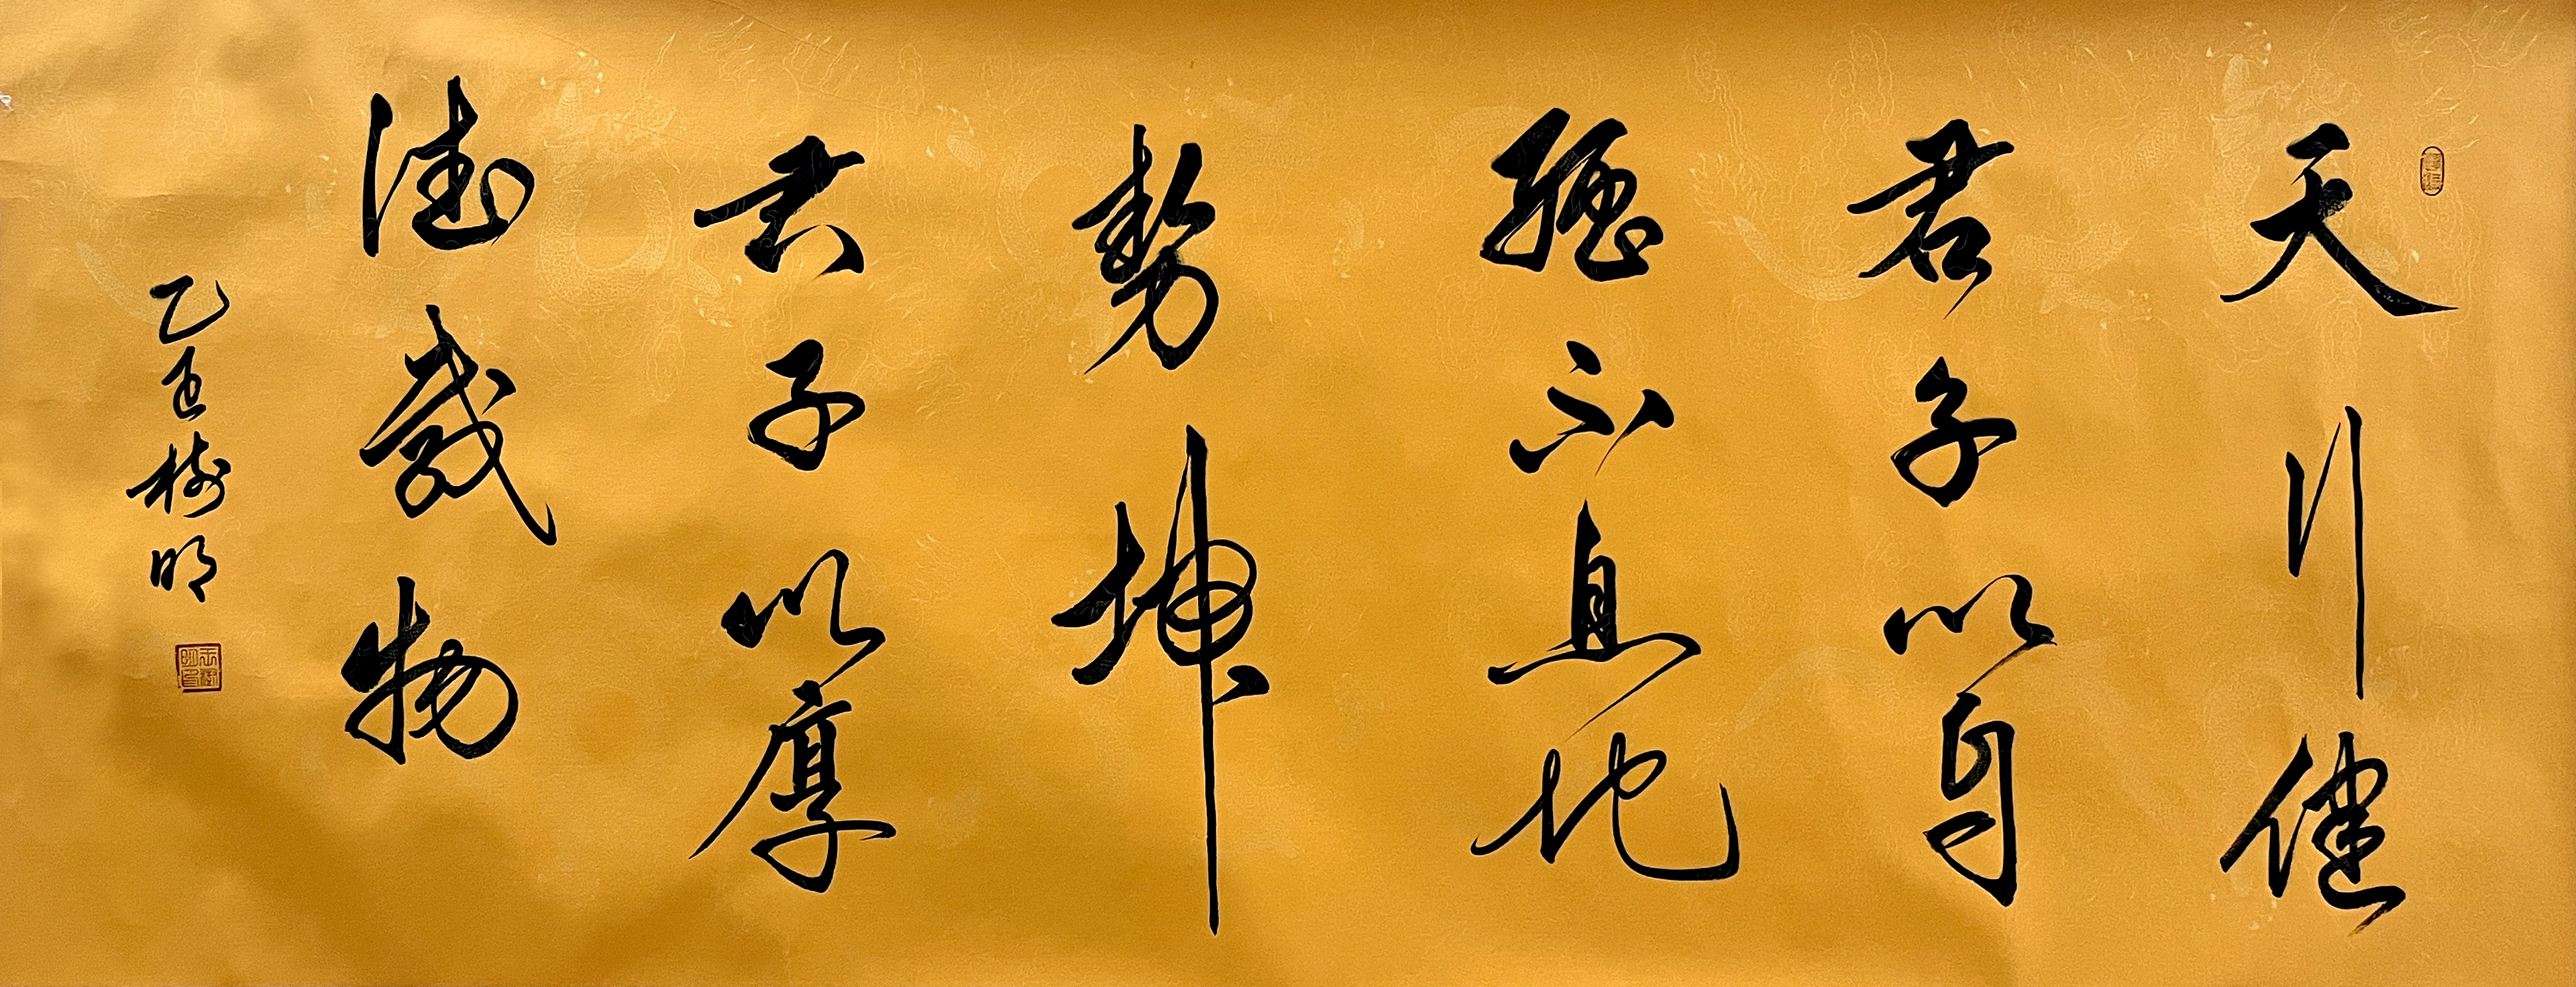 天行健
君子以自
强不息地
勢坤
君子以厚
德載物
乙 樹明